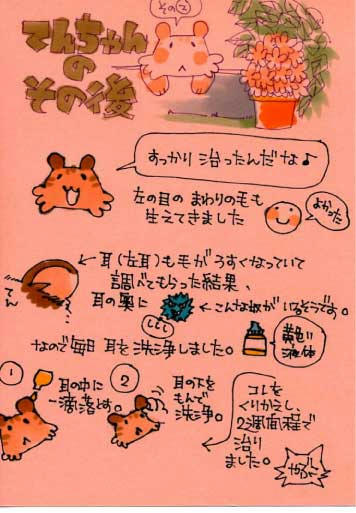 その②
てんちゃん
の
その後
すっかり治ったんだな♪
左の目のまわりの毛も
生えてきました
よかった
← 耳(左耳)も毛がうすくなっていて
調べてもらった結果、
耳の奥に ← こんな奴がいるそうです。
てん
ししし
なので毎日 耳を洗浄しました。
黄色い
液体
①
耳の中に
一滴落とす。
②
耳の下を
もんで
洗浄。
コレを
くりかえし、
2週間程で
治り
ました。